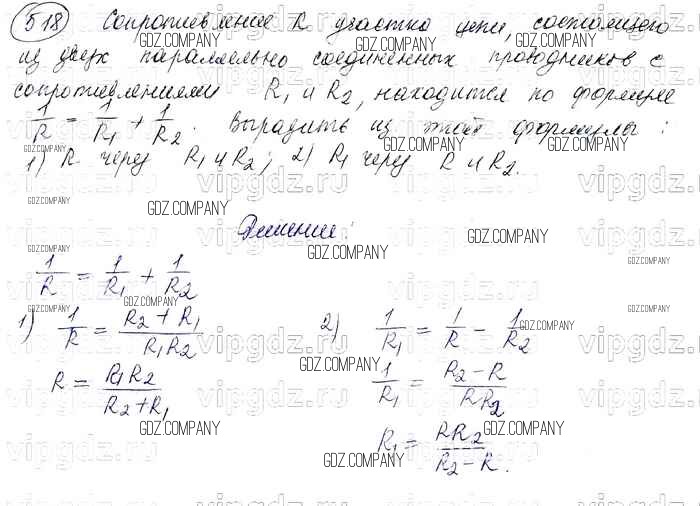 518 Сопротивление R участка цепи, состоящего
из двух параллельно соединённых проводников с
сопротивлениями R₁ и R₂, находится по формуле
1/R = 1/R₁ + 1/R₂. Выразить из этой формулы:
1) R через R₁ и R₂; 2) R₁ через R и R₂.
Решение:
1/R = 1/R₁ + 1/R₂
1) 1/R = (R₂ + R₁)/(R₁R₂)
R = R₁R₂/(R₂ + R₁)
2) 1/R₁ = 1/R − 1/R₂
1/R₁ = (R₂ − R)/(RR₂)
R₁ = RR₂/(R₂ − R).
GDZ.COMPANY
vipgdz.ru